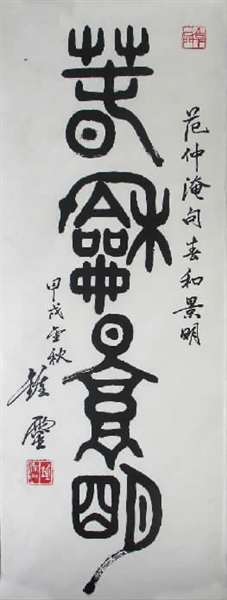 范仲淹句春和景明
春龢景明
甲戌金秋
鍾靈